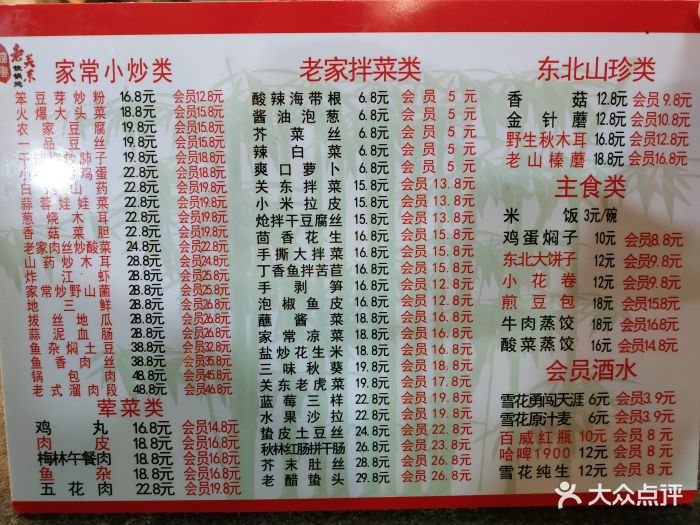 老关东
铁锅炖
家常小炒类
笨豆芽炒粉 16.8元 会员12.8元
火爆大头菜 18.8元 会员15.8元
农家豆腐 19.8元 会员15.8元
一品豆丝 19.8元 会员15.8元
肺子 19.8元 会员18.8元
小鸡蛋 22.8元 会员19.8元
白山药 22.8元 会员19.8元
蒜蓉娃娃菜 22.8元 会员19.8元
葱烧木耳 22.8元 会员19.8元
香菇菜胆 22.8元 会员19.8元
老家肉丝炒酸菜 24.8元 会员22.8元
山药炒木耳 28.8元 会员24.8元
炸江虾 28.8元 会员25.8元
家常炒野山菌 28.8元 会员26.8元
地三鲜 28.8元 会员25.8元
拔丝地瓜 28.8元 会员26.8元
蒜泥血肠 28.8元 会员26.8元
鱼杂焖土豆 38.8元 会员35.8元
鱼香肉丝 38.8元 会员35.8元
锅包肉 48.8元 会员45.8元
老式溜肉段 48.8元 会员46.8元
荤菜类
鸡丸 16.8元 会员14.8元
肉皮 18.8元 会员16.8元
梅林午餐肉 18.8元 会员16.8元
鱼杂 18.8元 会员16.8元
五花肉 22.8元 会员19.8元
老家拌菜类
酸辣海带根 6.8元 会员 5 元
酱油泡葱 6.8元 会员 5 元
芥菜丝 6.8元 会员 5 元
辣白菜 6.8元 会员 5 元
爽口萝卜 6.8元 会员 5 元
关东拌菜 15.8元 会员13.8元
小米拉皮 15.8元 会员13.8元
炝拌干豆腐丝 15.8元 会员13.8元
茴香花生 15.8元 会员13.8元
手撕大拌菜 15.8元 会员13.8元
丁香鱼拌苦苣 16.8元 会员13.8元
手剥笋 16.8元 会员15.8元
泡椒鱼皮 18.8元 会员16.8元
蘸酱菜 18.8元 会员16.8元
家常凉菜 18.8元 会员16.8元
盐炒花生米 18.8元 会员16.8元
三味秋葵 19.8元 会员16.8元
关东老虎菜 19.8元 会员16.8元
蓝莓三样 22.8元 会员19.8元
水果沙拉 22.8元 会员19.8元
蛰皮土豆丝 24.8元 会员22.8元
秋林红肠拼干肠 26.8元 会员23.8元
芥末肚丝 28.8元 会员26.8元
老醋蛰头 29.8元 会员26.8元
东北山珍类
香菇 12.8元 会员 9.8元
金针蘑 12.8元 会员10.8元
野生秋木耳 16.8元 会员12.8元
老山榛蘑 18.8元 会员16.8元
主食类
米饭 3元/碗
鸡蛋焖子 10元 会员8.8元
东北大饼子 12元 会员9.8元
小花卷 12元 会员9.8元
煎豆包 18元 会员15.8元
牛肉蒸饺 18元 会员16.8元
酸菜蒸饺 16元 会员14.8元
会员酒水
雪花勇闯天涯 6元 会员3.9元
雪花原汁麦 6元 会员3.9元
百威红瓶 10元 会员 8 元
哈啤1900 12元 会员 8 元
雪花纯生 12元 会员 8 元
大众点评